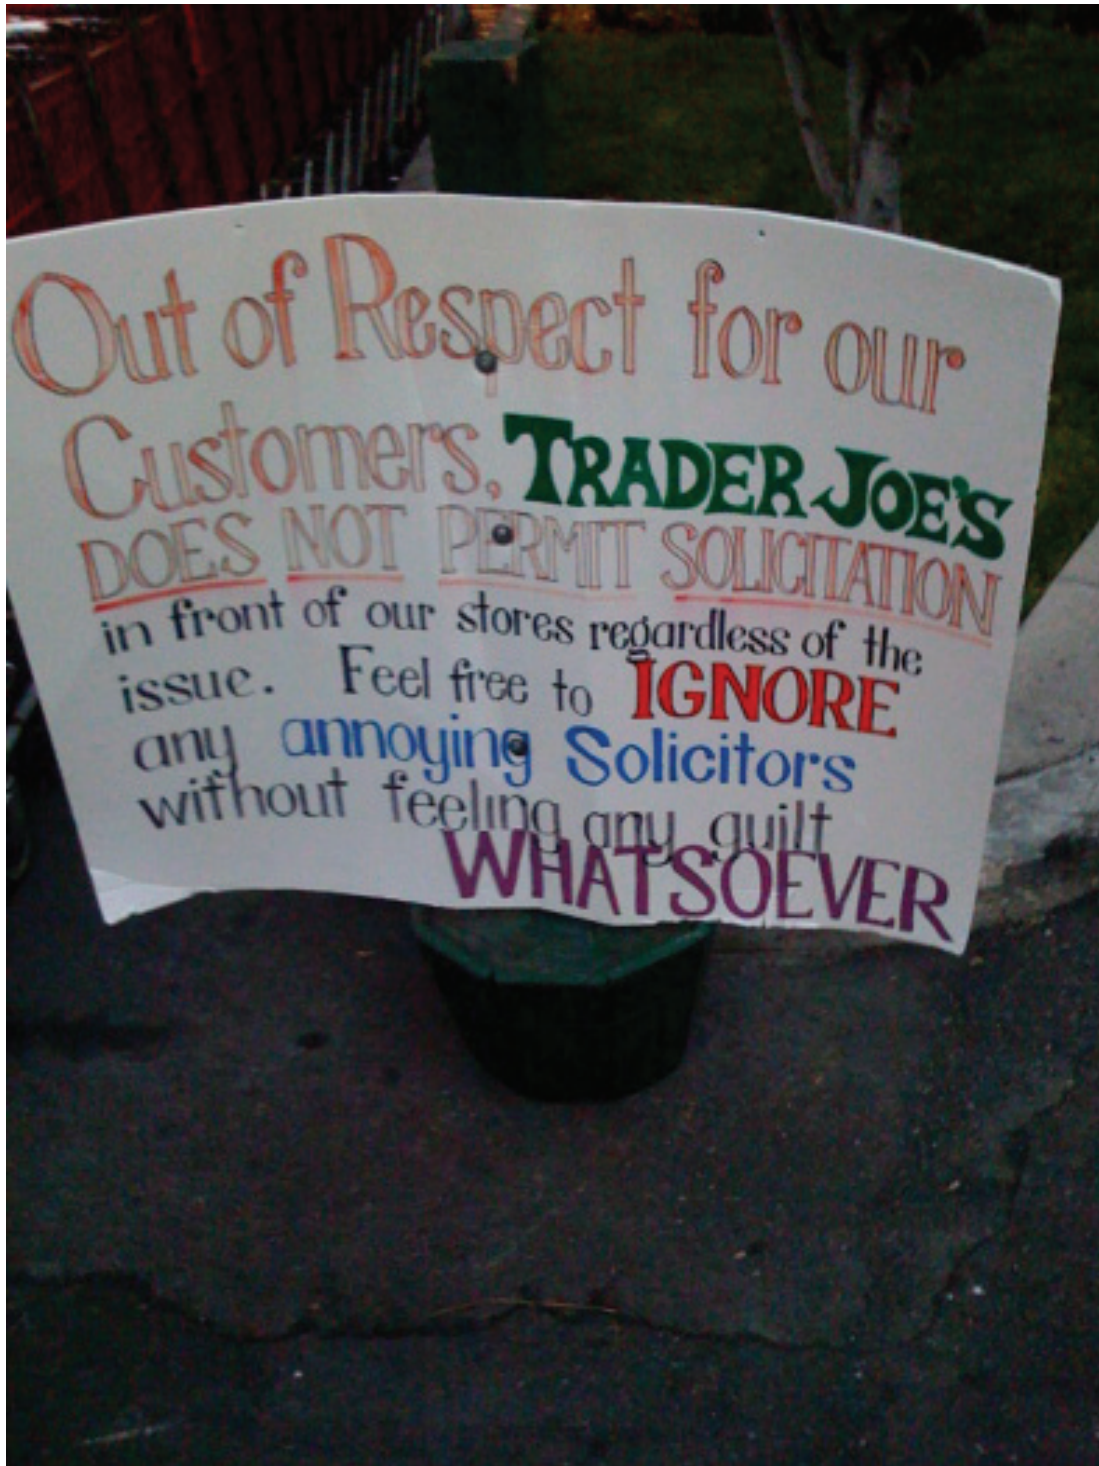 Out of Respect for our
Customers, TRADER JOE'S
DOES NOT PERMIT SOLICITATION
in front of our stores regardless of the
issue. Feel free to IGNORE
any annoying Solicitors
without feeling any guilt
WHATSOEVER